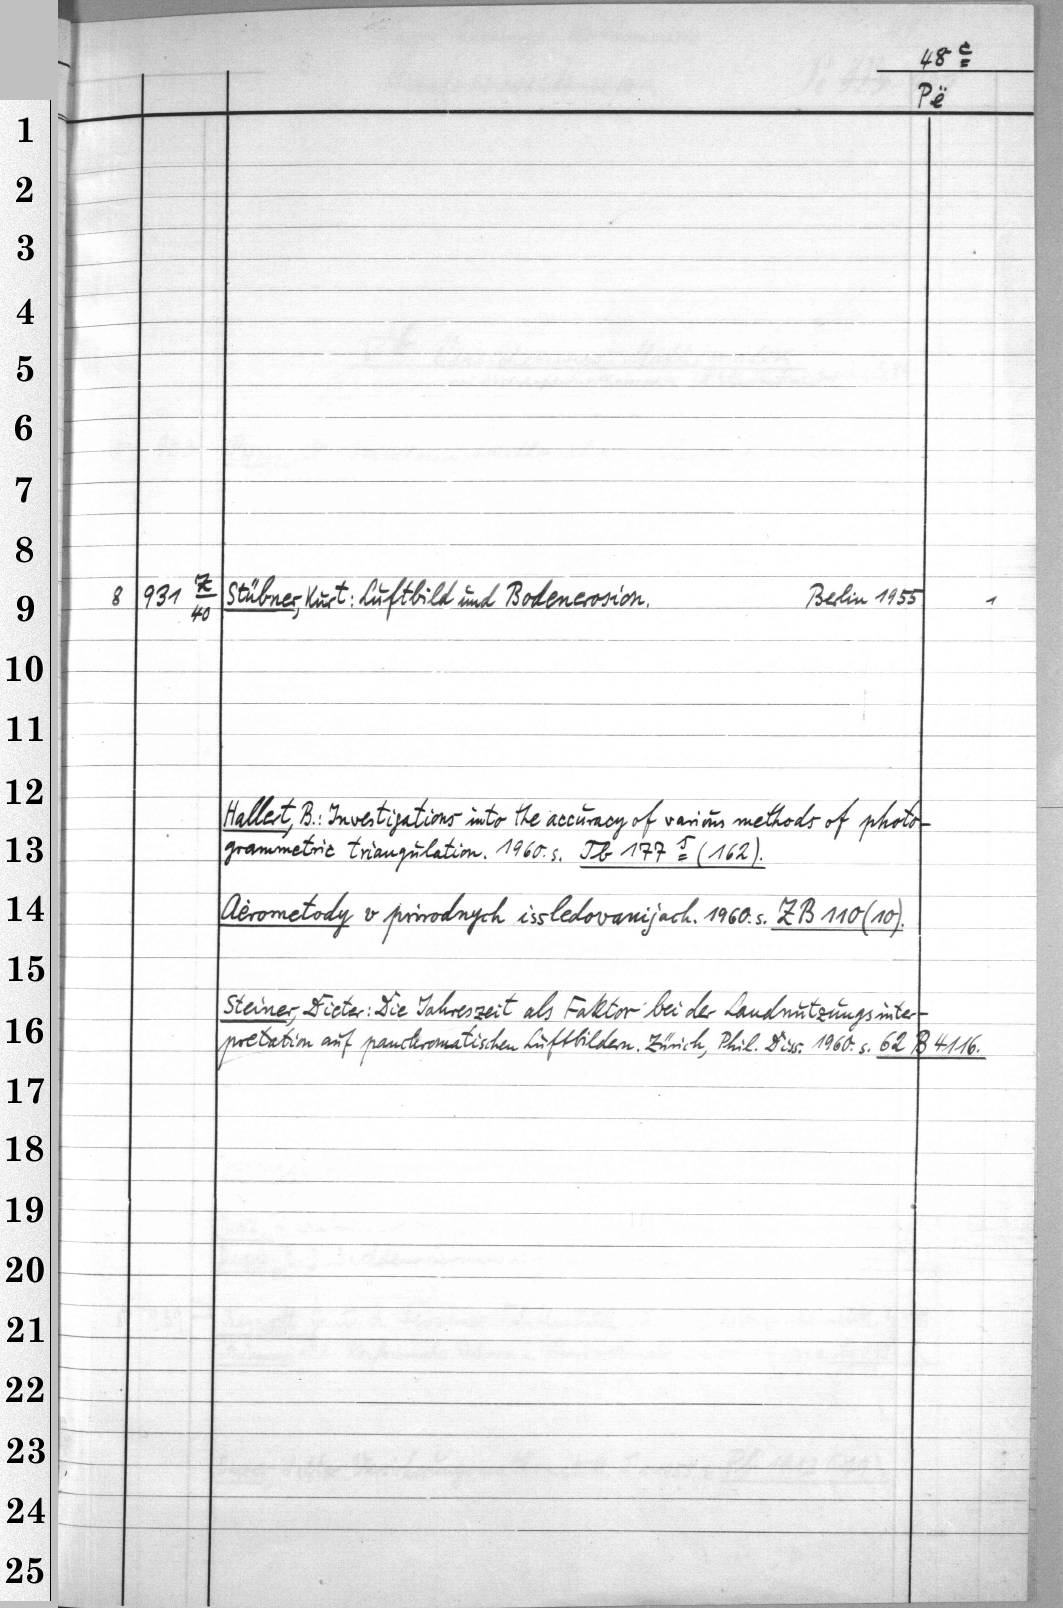 48 c
Pë
1
2
3
4
5
6
7
8
9
8 931 Z/40 Stübner, Kurt: Luftbild und Bodenerosion. Berlin 1955 1
10
11
12
Hallert, B.: Investigations into the accuracy of various methods of photo-
13
grammetric triangulation. 1960. s. Tb 177 (162).
14
Aėrometody v prirodnych issledovanijach. 1960. s. ZB 110 (10).
15
Steiner, Dieter: Die Jahreszeit als Faktor bei der Landnutzungsinter-
16
pretation auf panchromatischen Luftbildern. Zürich, Phil. Diss. 1960. s. 62 B 4116.
17
18
19
20
21
22
23
24
25